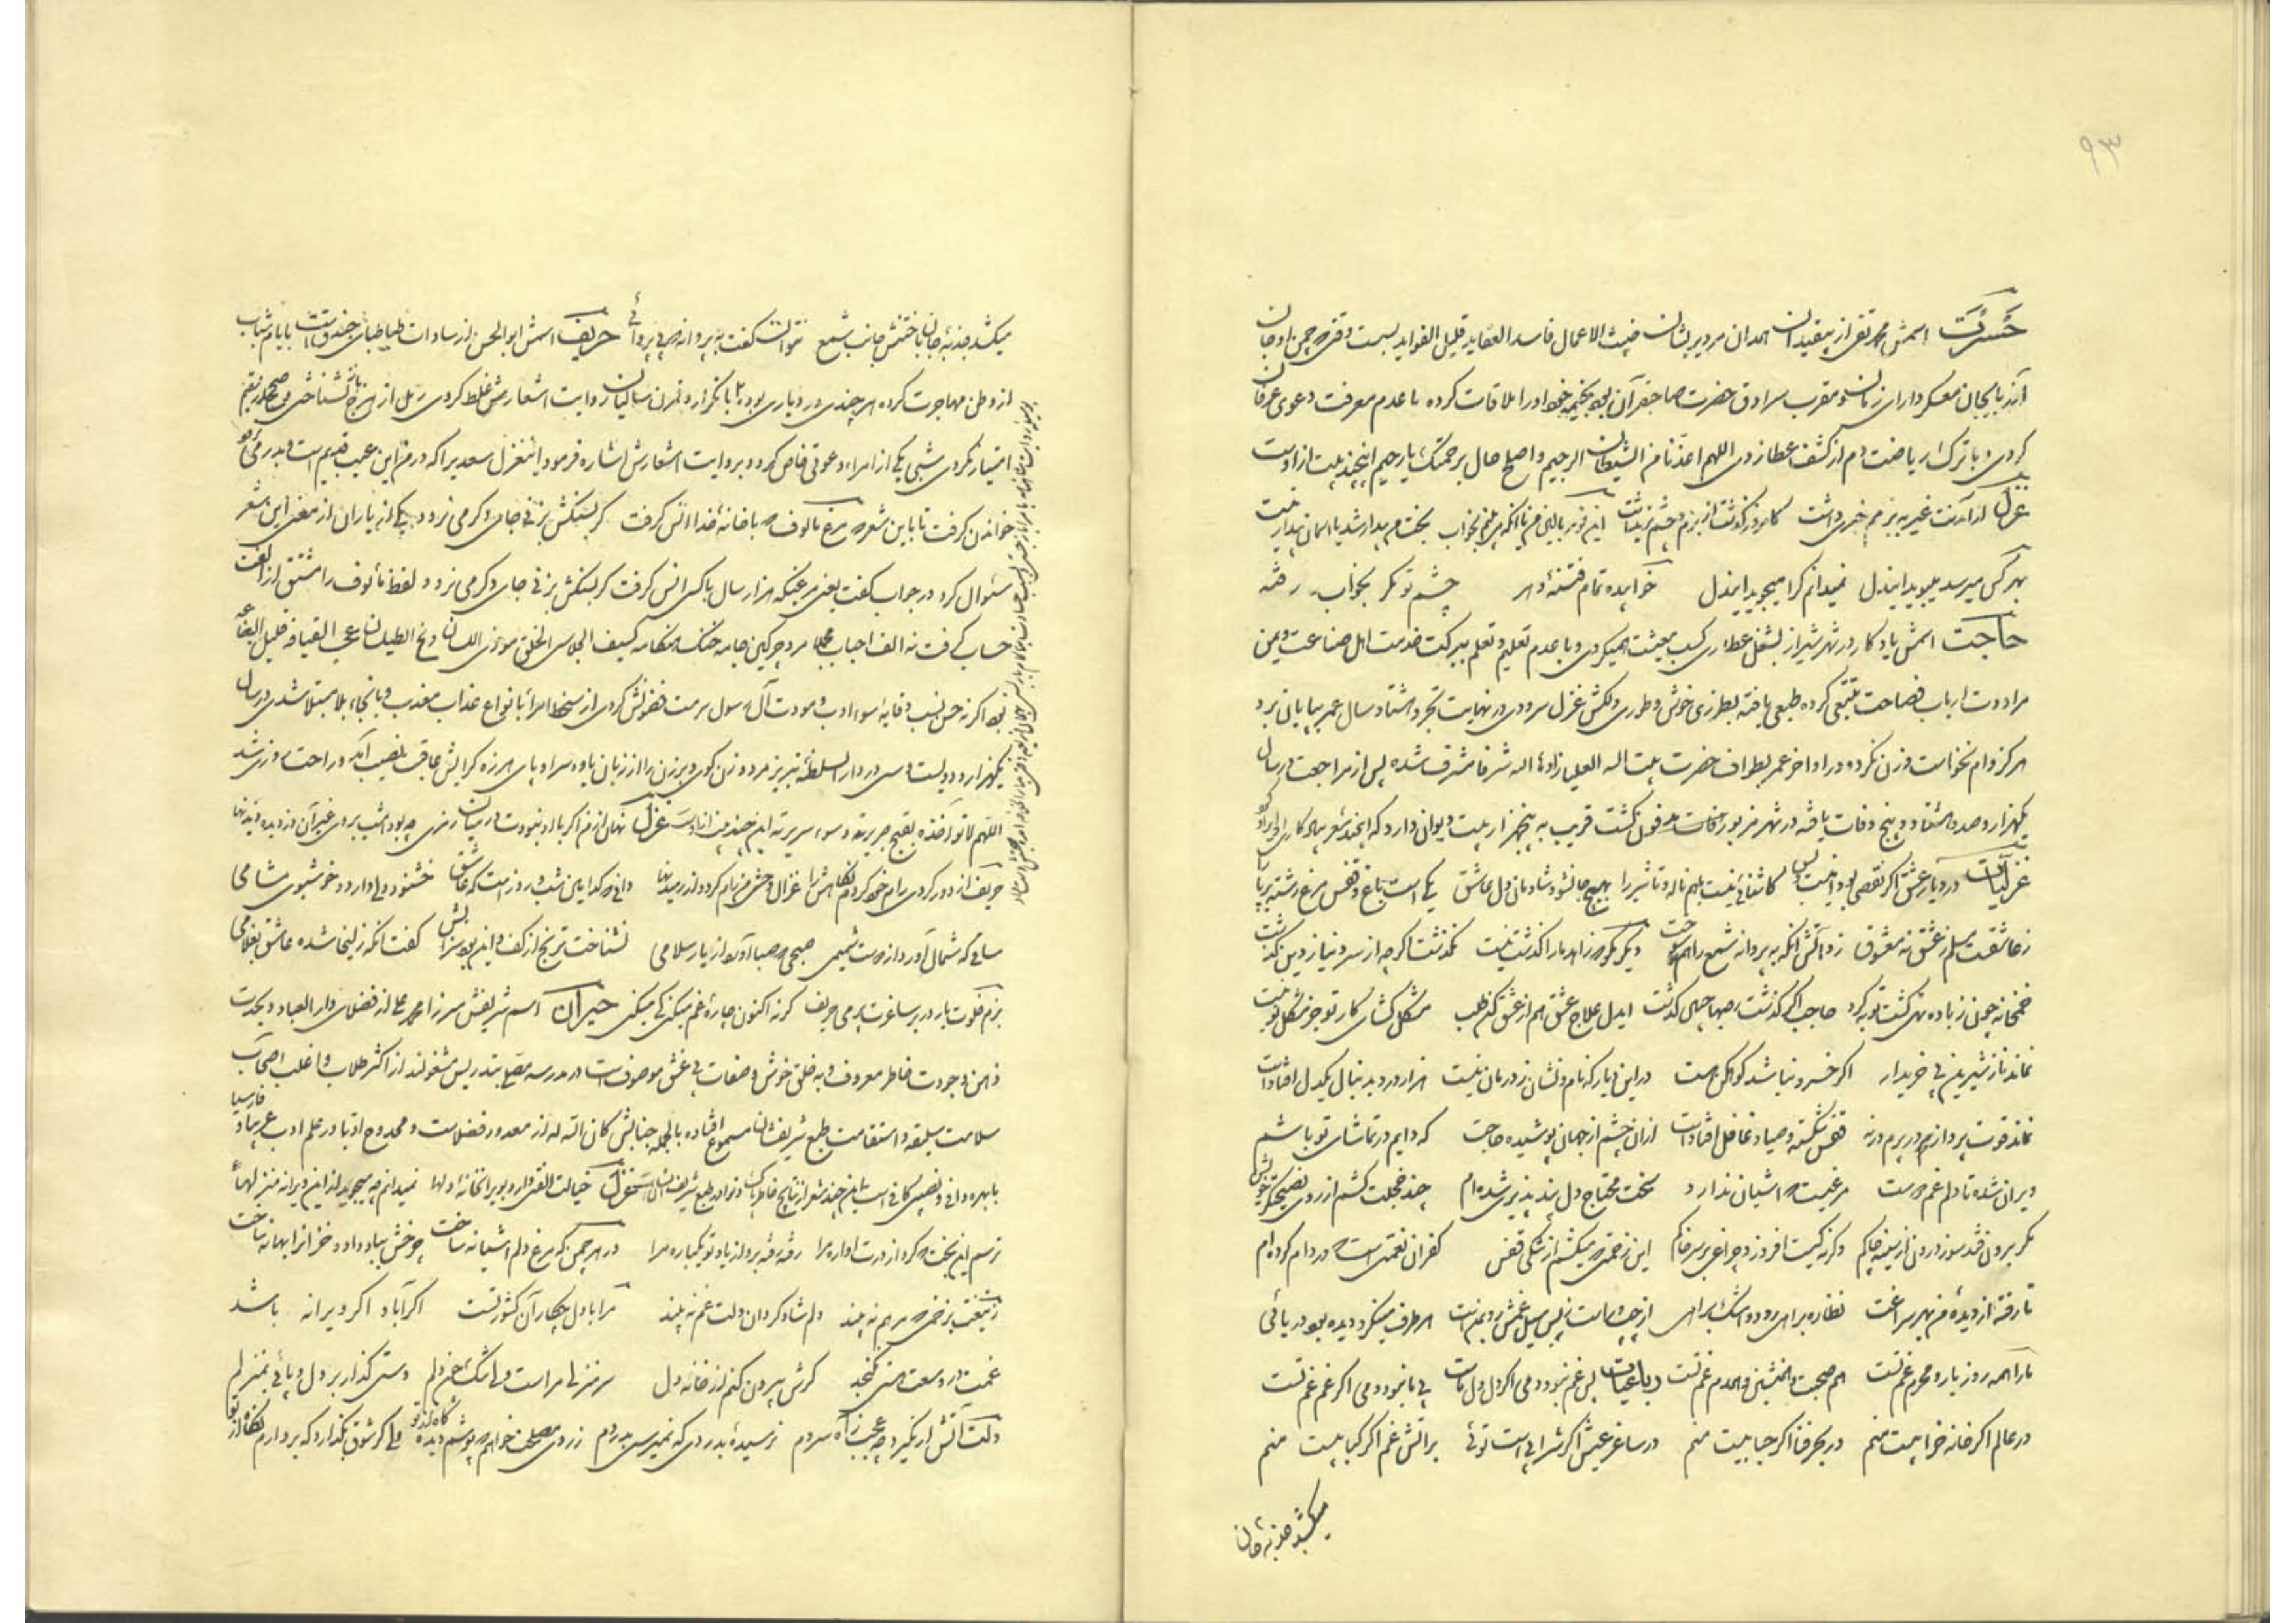 ۹۳
حسرت اسمش محمد تقی از بیقیدان همدان مردی پریشان خبیث الاعمال فاسد العقاید قلیل الفواید بیست وقتی در چمن اوجان
آذربایجان معسکر دارای زمان و مقرب سرادق حضرت صاحبقران بود بخیمه خود او را ملاقات کرده با عدم معرفت دعوی عرفان
کردی و با ترک ریاضت دم از کشف غطا زدی اللهم اعذنا من الشیطان الرجیم و اصلح حال برحمتک یا رحیم این چند بیت از اوست
غزل از آمدنت غیر به بزمم خبری داشت کامروز گذشت از بزم و چشم این بخواب بخت من بیدار شد یا آسمان بیدار نیست
بهر کس میرسد میبوید ایندل نمیدانم کرا میجوید ایندل خوابیده تمام فتنهٔ دهر چشم تو مگر بخواب رفته
حاجت اسمش یادگار در شهر شیراز بشغل عطاری کسب معیشت همیکردی و با عدم تعلیم و تعلم ببرکت خدمت اهل صناعت و یمن
مراودت ارباب فصاحت تتبعی کرده طبعی یافته بطرزی خوش و طوری دلکش غزل سرودی در نهایت تجرد هشتاد سال عمر بپایان برد
هرگز وام نخواست و زن نکرد و در اواخر عمر بطواف حضرت بیت الله العلیا زادها الله شرفا مشرف شده پس از مراجعت در سال
یکهزار و صد و هشتاد و پنج وفات یافته در شهر مزبور مدفون گشت قریب به پنجهزار بیت دیوان دارد که این چند شعر بیادگار از او
غزلیات در دیار عشق اگر نقصی بود اینست بس کاشنائی نیست باهم ناله و تاثیر را بهیچ جا نشود شادمان دل عاشق یکی است باغ و قفس مرغ رشته بر پا را
ز عاشقست مسلم ز عشق نه معشوق زد آتش آنکه به پروانه شمع را هم سوخت دیگر مگو که زاهد ما را گذشت نیست نگذشت اگر چه از سر دنیا ز دین گذشت
خمخانه چون ز باده تهی گشت توبه کرد حاجب اگر گذشت ز صهبا چنین گذشت ایدل علاج عشق هم از عشق کن طلب مشکل گشای کار تو جز مشکل تو نیست
نماند ناز شیرین بی خریدار اگر خسرو نباشد کوهکن هست در این دیار که نام و نشان ز درمان نیست هزار درد بدنبال یکدل افتادست
نماند قوت پروازم و در برم ورنه قفس شکسته و صیاد غافل افتادست ازان چشم از جهان پوشیده حاجت که دایم در تماشای تو باشم
ویران شده تا دلم غم در اوست مرغیست که آشیان ندارد سخت محتاج دل پند پذیر شده‌ام چند خجلت کشم از روی نصیحتگر خویش
مگر برون فتد سوز درون از سینه چاکم وگرنه کیست افروزد چراغی بر سر خاکم این زخمتی که میکشم از تنگی قفس کفران نعمتی است که در دام کرده‌ام
تا رفته از دیده من بهر سراغت نظاره براهی رود و اشک براهی از چپ و راست ز بس سیل غمش رو بمن است هر طرف مینگرد دیده بود دریائی
ما را همه روز یار و محرم غم تست هم صحبت و همنشین و همدم غم تست رباعیات بس غم نبود دمی اگر دل دل ماست بی ما نبود دمی اگر غم غم تست
در عالم اگر خانه خرابیست منم در بحر فنا اگر حبابیست منم در ساغر عیش اگر شرابی است توئی بر آتش غم اگر کبابیست منم
میکشد جذبهٔ جان
میکشد جذبهٔ جان باختنش جانب شمع نتوانست گفت به پروانه که بی‌پروائی حریف اسمش ابوالحسن از سادات طباطبای جندق است بایام شباب
از وطن مهاجرت کرده هر چندی در دیاری بوده با تکرار و تمرن سالیان روایت اشعارش غلط کردی رمل از هزج باز نشناختی و صحیح از سقیم
امتیاز نکردی شبی یکی از امراء دعوتی خاص کرد و بروایت اشعارش اشاره فرمود اینغزل سعدی را که در من این عیب قدیم است و بدر می‌نرود
خواندن گرفت تا باین شعر که مرغ مالوف که با خانهٔ خدا انس گرفت گر بسنگش بزنی جای دگر می نرود یکی از یاران از معنی این شعر
سئوال کرد در جواب گفت یعنی مرغیکه هزار سال با کس انس گرفت گر بسنگش بزنی جای دگر می نرود لفظ مألوف را مشتق از الف
حساب گرفت نه الف احباب مردی چرکین جامه خنک هنگامه کثیف الجلاس الخلق موذی اللسان وسخ الطیلسان عجیب القیافه قلیل البضاعه
بود اگر نه حسن نسب وقایهٔ سوء ادب و مودت آل رسول مرمت فضولش کردی از سخط امرا بانواع عذاب معذب و بانحاء بلا مبتلا شدی در سال
یکهزار و دویست و سی در دار السلطنهٔ تبریز مرد و زن کوی و برزن را از زبان یاوه سرا و پای هرزه گرایش عاقبت نصیب آمد و راحت روزی شد
اللهم لا تواخذه بقبح جریرته و سوء سریرته این چند بیت از اوست غزل نهان از من اگر با او نبودت در میان رمزی چه بود امشب بروی غیر آن دزدیده دیدنها
حریف از دور گردی رام خود کردم نگاهش را غزال وحشی من رام گردد از رمیدنها دانی که کدامین شب و روز است که عاشق خشنود دلی دارد و خوشبوی مشامی
ساقی که شمال آورد از دوست شمیمی صبحی که صبا آورد از یار سلامی نشناخت ترنج از کف و این بوسزایش گفت آنکه زلیخا شده عاشق بغلامی
بزم خلوت یار در بر ساغرت پر می حریف گر نه اکنون چارهٔ غم میکنی کی میکنی حیران اسم شریفش میرزا محمد علی از فضلای دار العباد و بحدت
ذهن و جودت خاطر معروف و به خلق خوش و صفات بی غش موصوف است در مدرسه مصلی بتدریس مشغولند از اکثر طلاب و اغلب اصحاب
سلامت سلیقه و استقامت طبع شریفشان مسموع افتاده بالجمله جنابش کان الله له از معدود فضلاست و ممدوح ادبا در علم ادب عربیا و فارسیا
با بهره وافی و نصیبی کافی است این چند شعر از نتایج خاطر پاک و نوادر طبع شریف ایشان است غزل خیالت الفتی دارد بویرانخانهٔ دلها نمیدانم چه میجوید از این ویرانه منزلها
ترسم این بخت که کرد از درت آواره مرا رفته رفته برد از یاد تو یکباره مرا در هر چمن که مرغ دلم آشیانه ساخت چرخش بباد داد و خزان را بهانه ساخت
ز تیغت بر زخمی که مرهم نه پسند دلم شاد گردان دلت غم نه پسند مرا با دل چکار آن کشور تست اگر آباد اگر ویرانه باشد
غمت در وسعت هستی نگنجد گرش بیرون کنم از خانهٔ دل سر منزلی مراست ولی اشک خون دلم دستی گذار بر دل و پائی بمنزلم
دلت آتش ار نگیرد چه عجب ز آه سردم نرسیدهٔ بدردی که نمیرسی بدردم ز روی مصلحت خواهم که پوشم دیده گاه از تو ولی کو شوق بگذارد که بردارم نگاه از تو